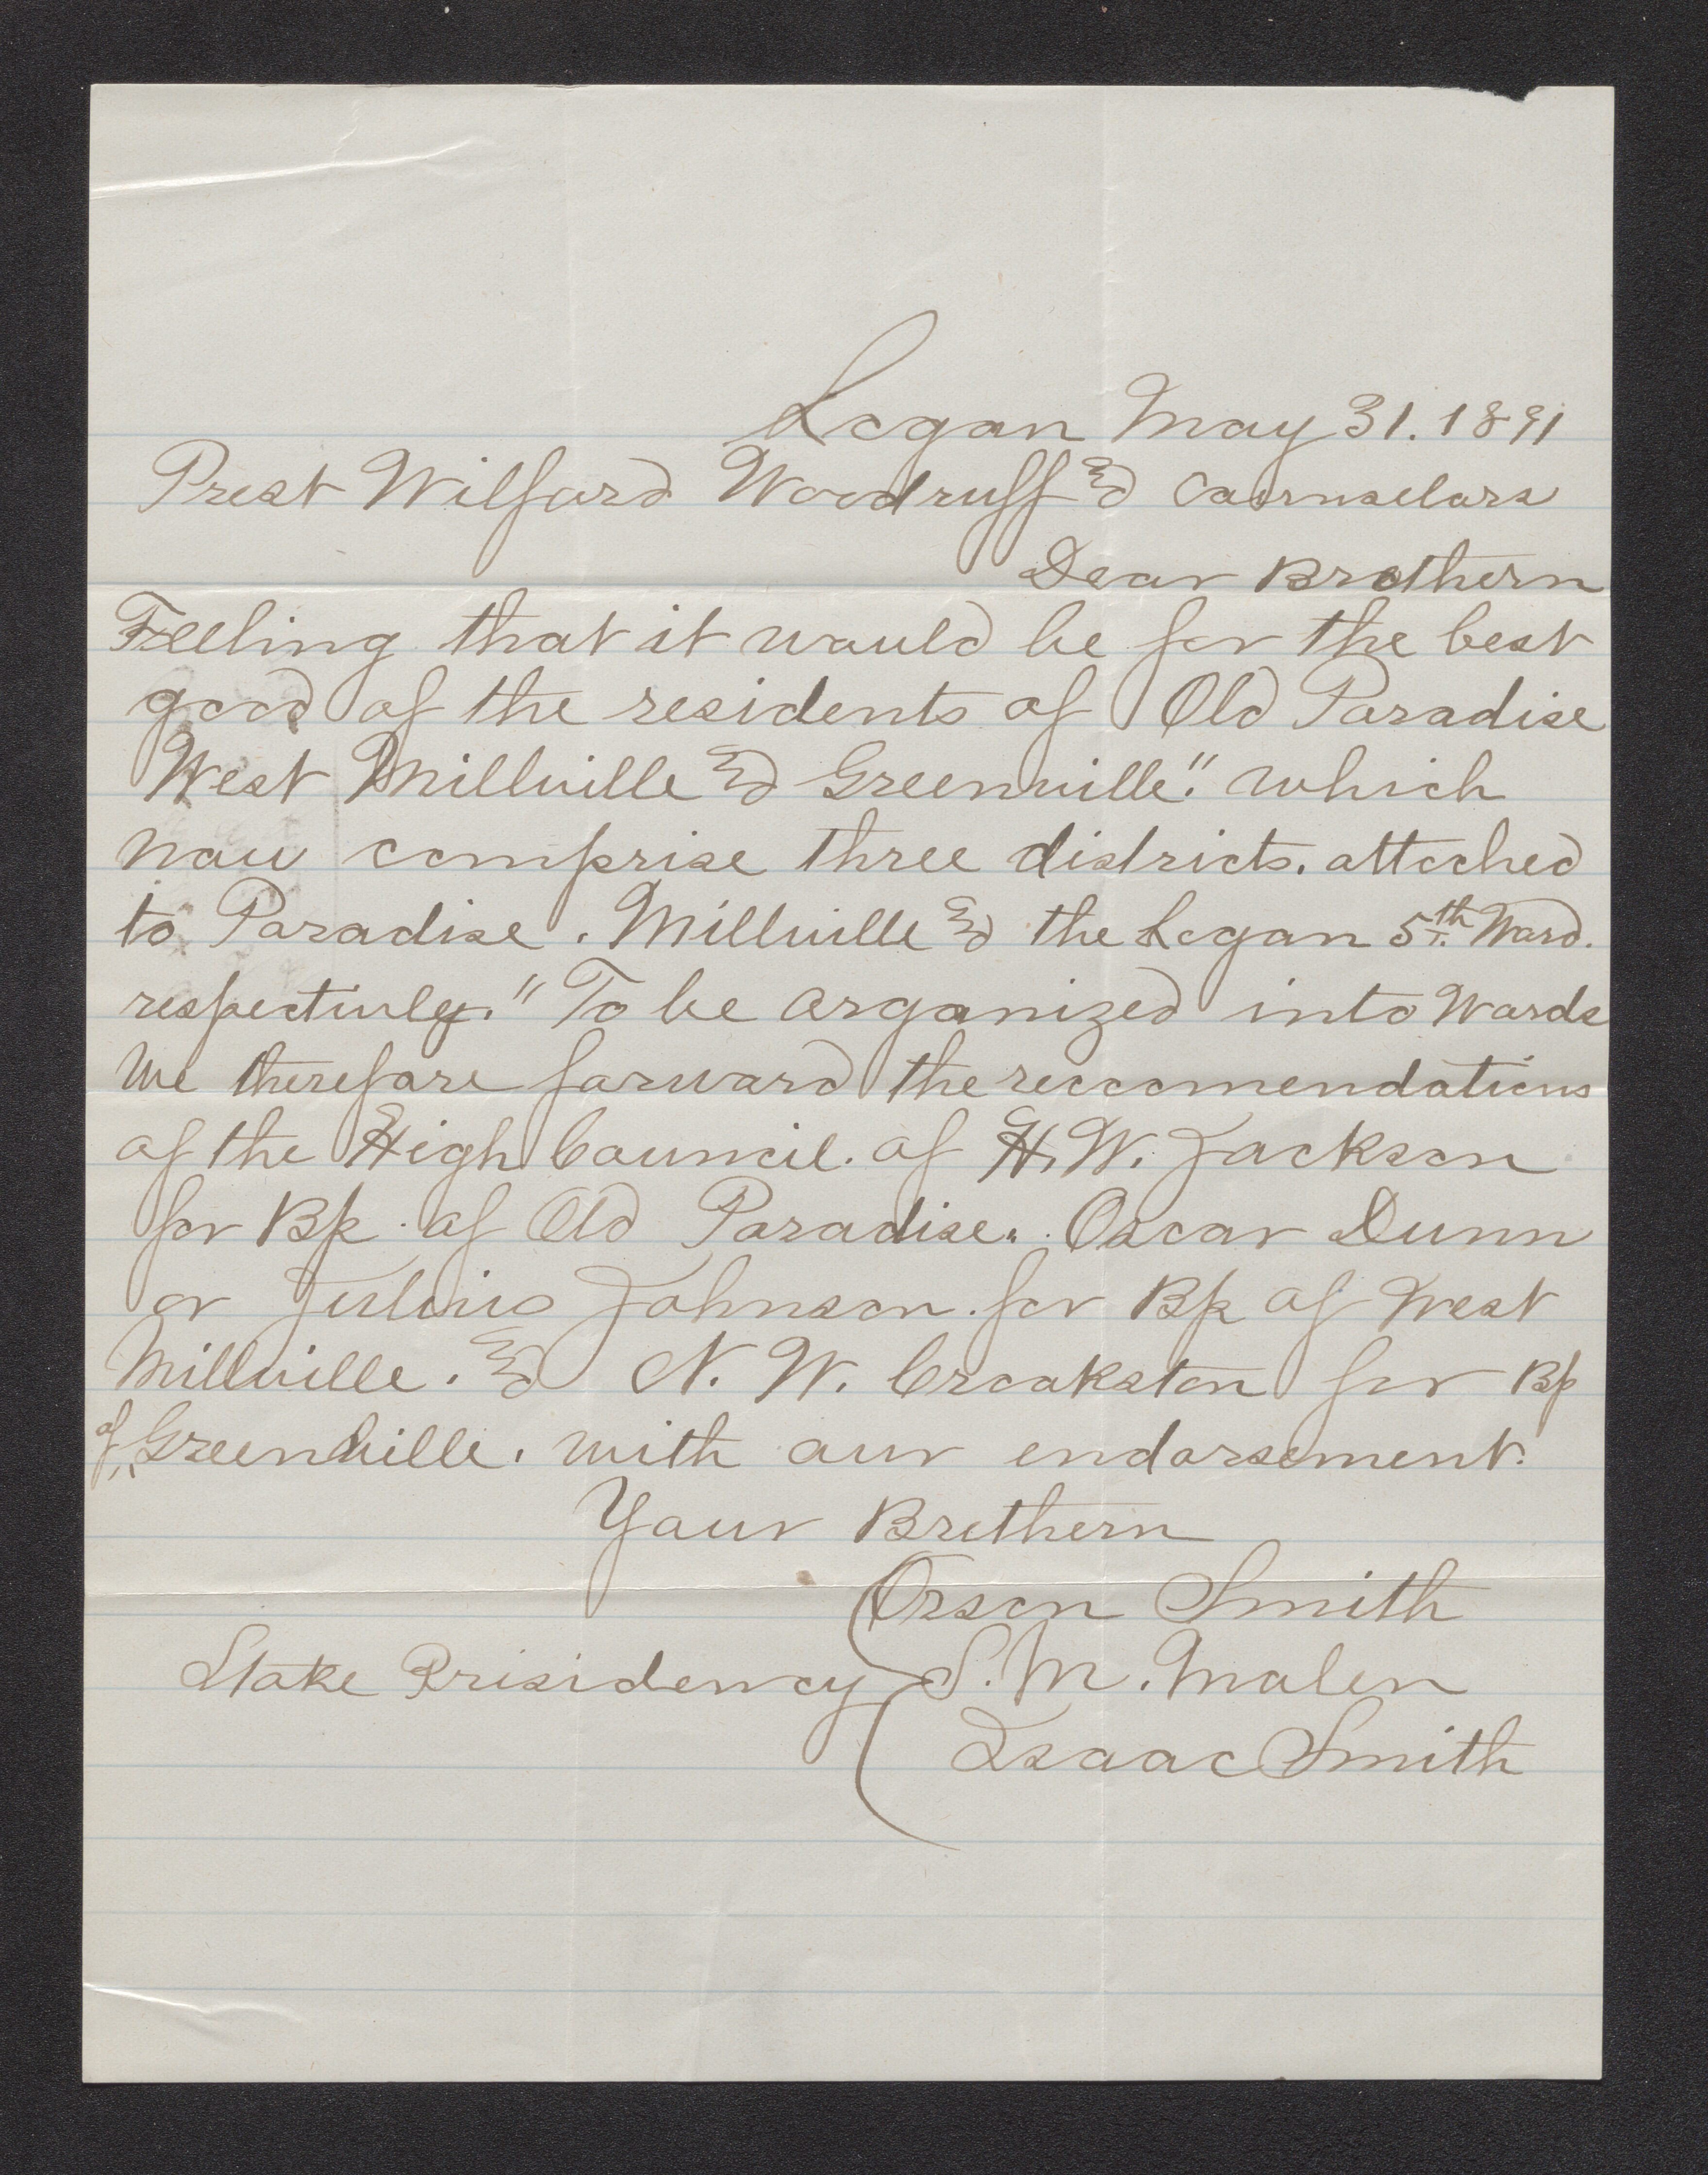 Logan May 31. 1891
Prest Wilford Woodruff & Counselors
Dear Brothern
Feeling that it would be for the best
good of the residents of Old Paradise
West Millville & Greenville". which
now comprise three districts. attached
to Paradise. Millville & the Logan 5th Ward.
respectivly." To be organized into Wards
We therefore forward the reccomendations
of the High Council. of H. W. Jackson
for Bp. of Old Paradise. Oscar Dunn
or Julius Johnson. for Bp of West
Millville. & N. W. Crookston for Bp
of Greenville. with our endorsement.
Your Brethern
Orson Smith
Stake Prisidency S. M. Molen
Isaac Smith